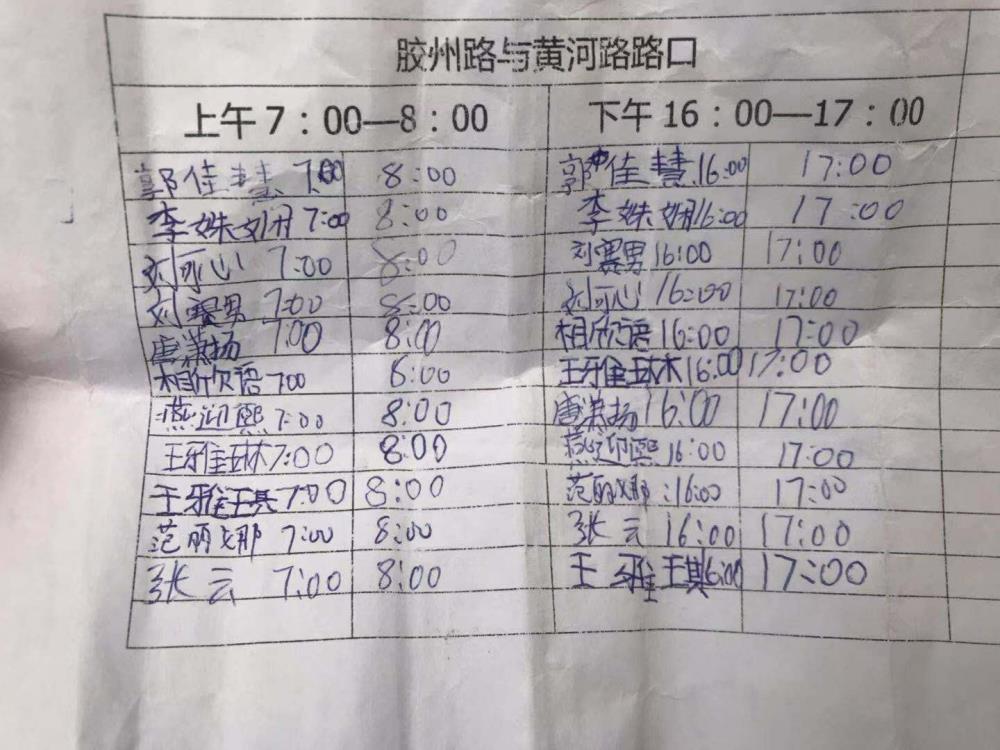 胶州路与黄河路路口
上午7：00—8：00 下午16：00—17：00
郭佳慧 7:00 8:00 郭佳慧 16:00 17:00
李姝娴 7:00 8:00 李姝娴 16:00 17:00
刘可心 7:00 8:00 刘赛男 16:00 17:00
刘赛男 7:00 8:00 刘可心 16:00 17:00
唐潇扬 7:00 8:00 相欣语 16:00 17:00
相欣语 7:00 8:00 王雅琳 16:00 17:00
燕迎熙 7:00 8:00 唐潇扬 16:00 17:00
王雅琳 7:00 8:00 燕迎熙 16:00 17:00
王雅琪 7:00 8:00 范丽娜:16:00 17:00
范丽娜 7:00 8:00 张云 16:00 17:00
张云 7:00 8:00 王雅琪 16:00 17:00